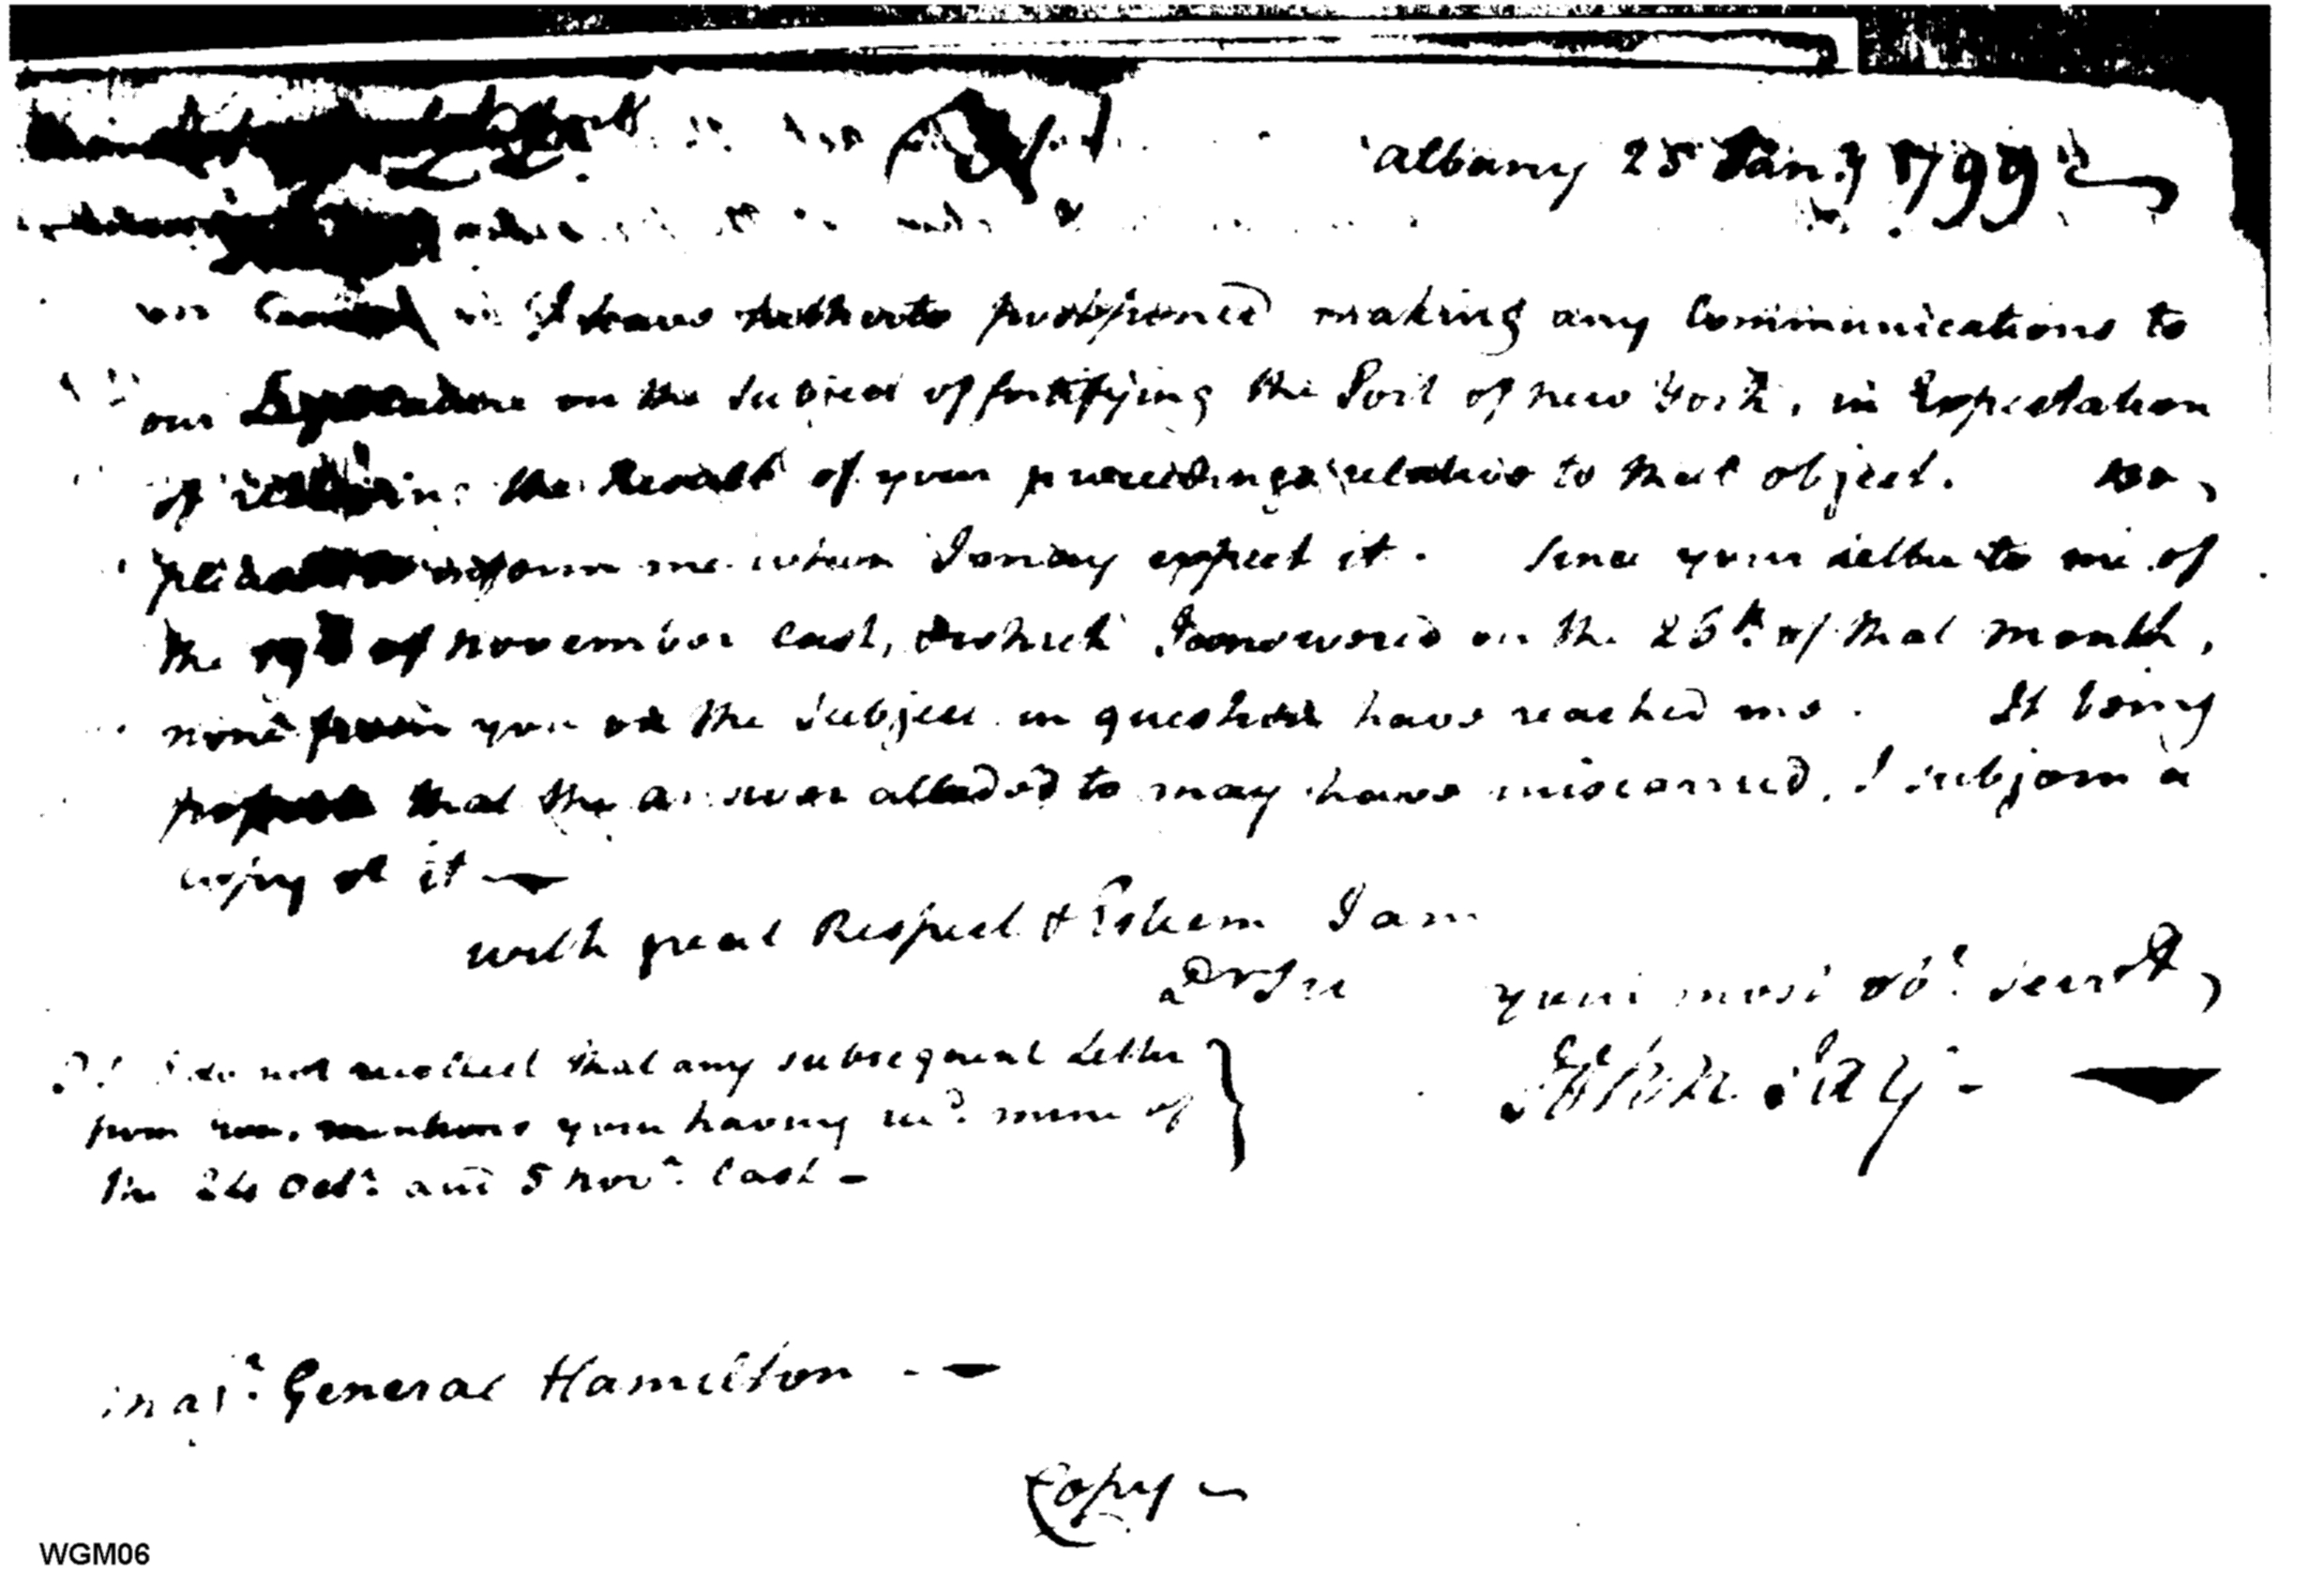 Albany 25 Jan.y 1799
I have hitherto postponed making any Communications to
our Legislature on the Subject of fortifying the Port of new York, in Expectation
of the Result of your proceedings relative to that object. Do,
please inform me when I may expect it. Since your Letter to me of
the 19 of November last, which I answered on the 26th. of that month,
none from you on the Subject in question have reached me. It being
possible that the answer alluded to may have miscarried, I subjoin a
copy of it —
with great Respect & Esteem I am
Dr Sir your most obt. servt,
John Jay —
P.S. I do not recollect that any subsequent Letter
from you, mentions your having recd. mine of
the 24 Octr. and 5 Novr. last —
Majr. General Hamilton — —
Copy —
WGM06